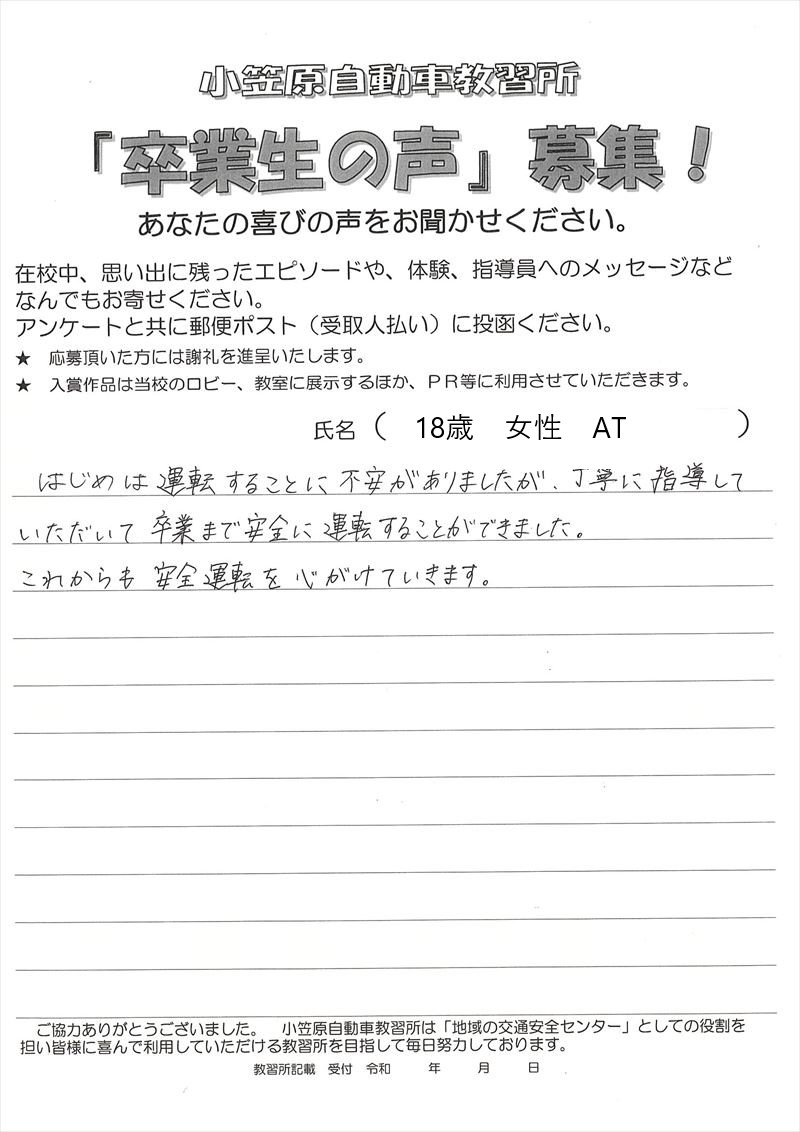 小笠原自動車教習所
『卒業生の声』募集！
あなたの喜びの声をお聞かせください。
在校中、思い出に残ったエピソードや、体験、指導員へのメッセージなど
なんでもお寄せください。
アンケートと共に郵便ポスト（受取人払い）に投函ください。
★　応募頂いた方には謝礼を進呈いたします。
★　入賞作品は当校のロビー、教室に展示するほか、ＰＲ等に利用させていただきます。
氏名（　18歳　女性　AT　）
はじめは運転することに不安がありましたが、丁寧に指導して
いただいて卒業まで安全に運転することができました。
これからも安全運転を心がけていきます。
ご協力ありがとうございました。　小笠原自動車教習所は「地域の交通安全センター」としての役割を
担い皆様に喜んで利用していただける教習所を目指して毎日努力しております。
教習所記載　受付　令和　　年　　月　　日